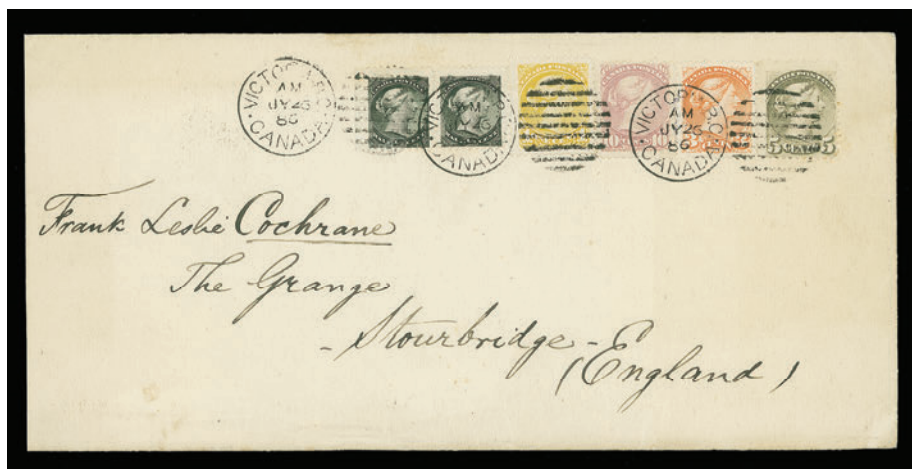 VICTORIA B.C.
AM
JY 26
86
CANADA
VICTORIA B.C.
AM
JY 26
CANADA
VICTORIA B.C.
AM
JY 26
86
CANADA
10 10
5 CENTS 5
Frank Leslie Cochrane
The Grange
- Stourbridge -
(England)